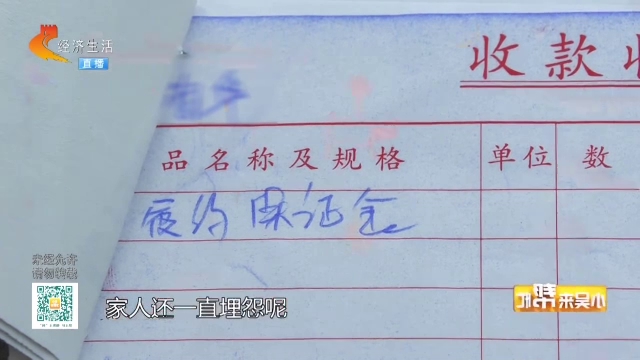 经济生活
直播
收款收
品名称及规格
单位
数
履约保证金
未经允许
请勿转载
家人还一直埋怨呢
小吴来帮你